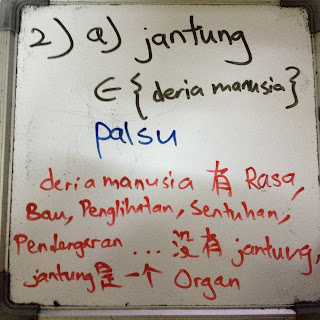 2) a) jantung
∈ {deria manusia}
palsu
deria manusia 有 Rasa,
Bau, Penglihatan, Sentuhan,
Pendengaran ... 没有 jantung,
jantung是一个 Organ